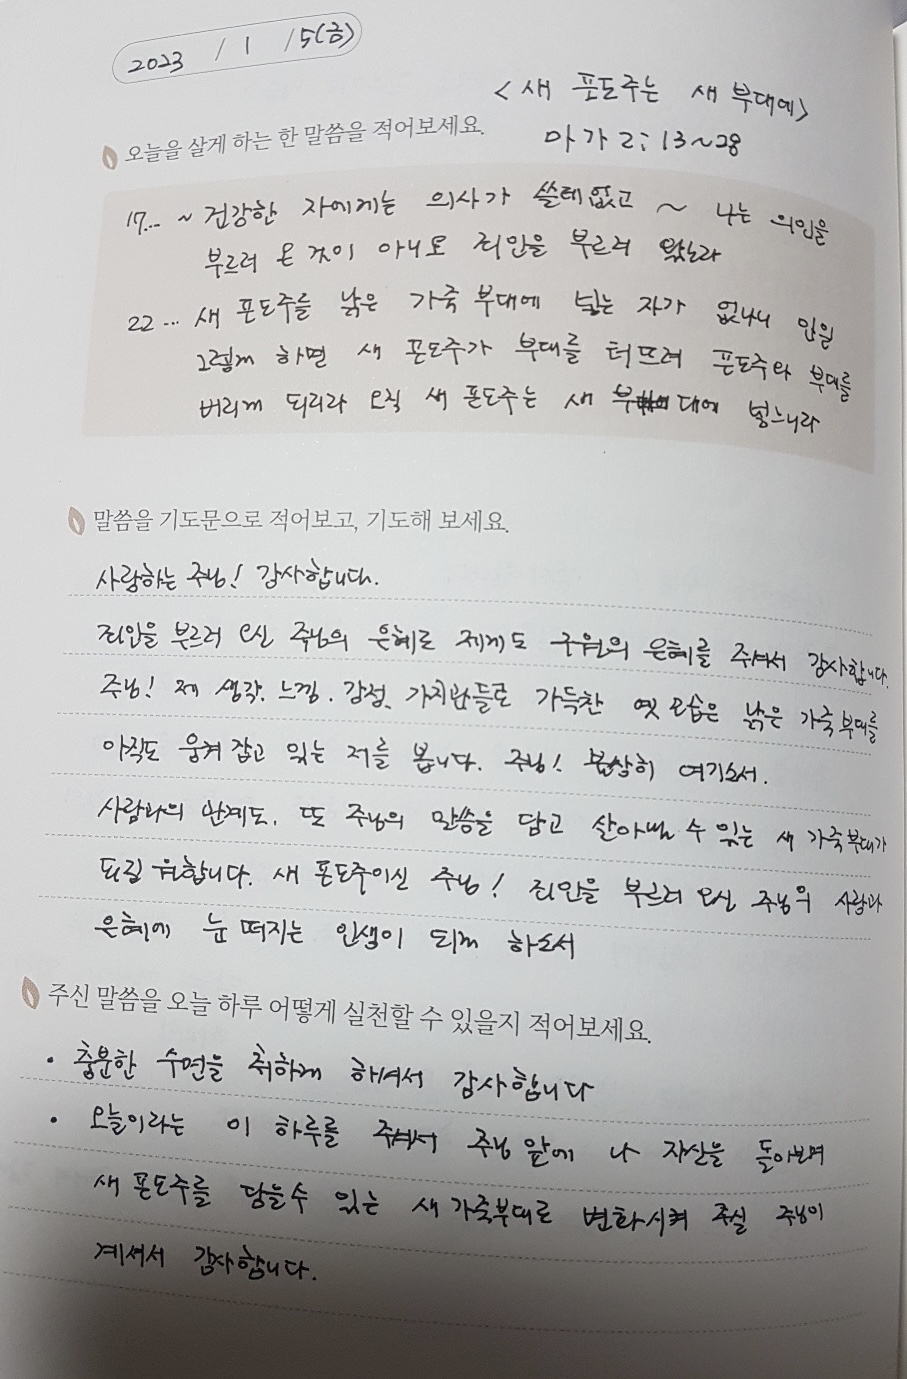 2023 / 1 / 5(금)
<새 포도주는 새 부대에>
마가 2: 13~28
오늘을 살게 하는 한 말씀을 적어보세요.
17... ~ 건강한 자에게는 의사가 쓸데없고 ~ 나는 의인을
부르러 온 것이 아니요 죄인을 부르러 왔노라
22... 새 포도주를 낡은 가죽 부대에 넣는 자가 없나니 만일
그렇게 하면 새 포도주가 부대를 터뜨려 포도주와 부대를
버리게 되리라 오직 새 포도주는 새 부대에 넣느니라
말씀을 기도문으로 적어보고, 기도해 보세요.
사랑하는 주님! 감사합니다.
죄인을 부르러 오신 주님의 은혜로 제게도 구원의 은혜를 주셔서 감사합니다.
주님! 제 생각, 느낌, 감정, 가치관들로 가득찬 옛 모습은 낡은 가죽부대를
아직도 움켜 잡고 있는 저를 봅니다. 주님! 불쌍히 여기소서.
사람과의 관계도, 또 주님의 말씀을 담고 살아낼 수 있는 새 가죽부대가
되길 원합니다. 새 포도주이신 주님! 죄인을 부르러 오신 주님의 사랑과
은혜에 눈 떠지는 인생이 되게 하소서
주신 말씀을 오늘 하루 어떻게 실천할 수 있을지 적어보세요.
• 충분한 수면을 취하게 하셔서 감사합니다
• 오늘이라는 이 하루를 주셔서 주님 앞에 나 자신을 돌아보며
새 포도주를 담을수 있는 새 가죽부대로 변화시켜 주실 주님이
계셔서 감사합니다.